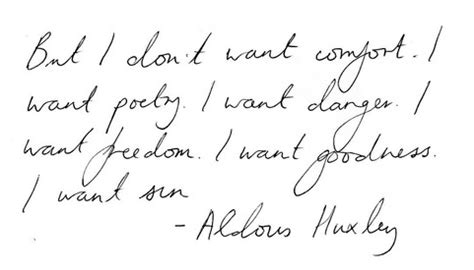 But I don't want comfort. I
want poetry. I want danger. I
want freedom. I want goodness.
I want sin
- Aldous Huxley